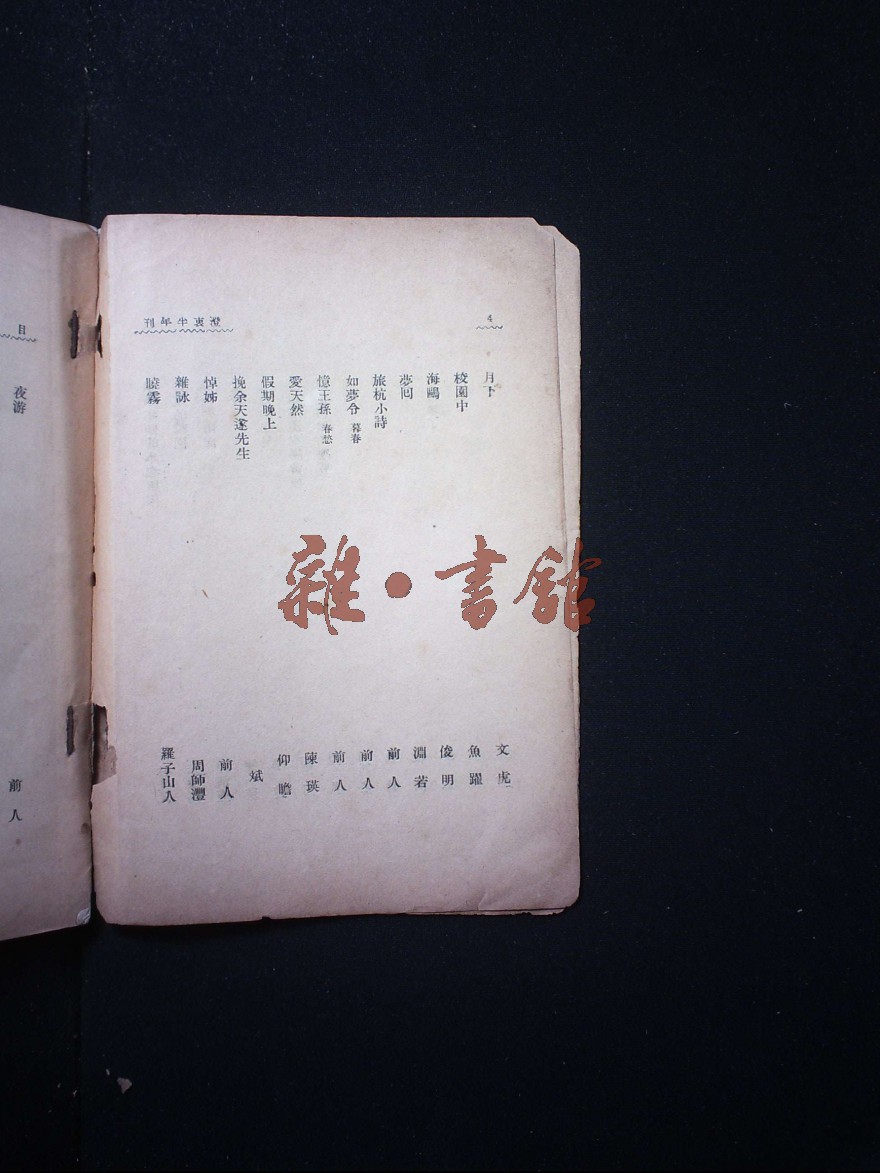 4
澄衷半年刊
月下 文虎
校園中 魚躍
海鷗 俊明
夢囘 淵若
旅杭小詩 前人
如夢令 暮春 前人
憶王孫 春愁 前人
愛天然 陳瑛
假期晚上 仰瞻
挽余天遂先生 斌
悼姊 前人
雜詠 周師灃
曉霧 羅子山人
目
夜游 前人
雜·書館